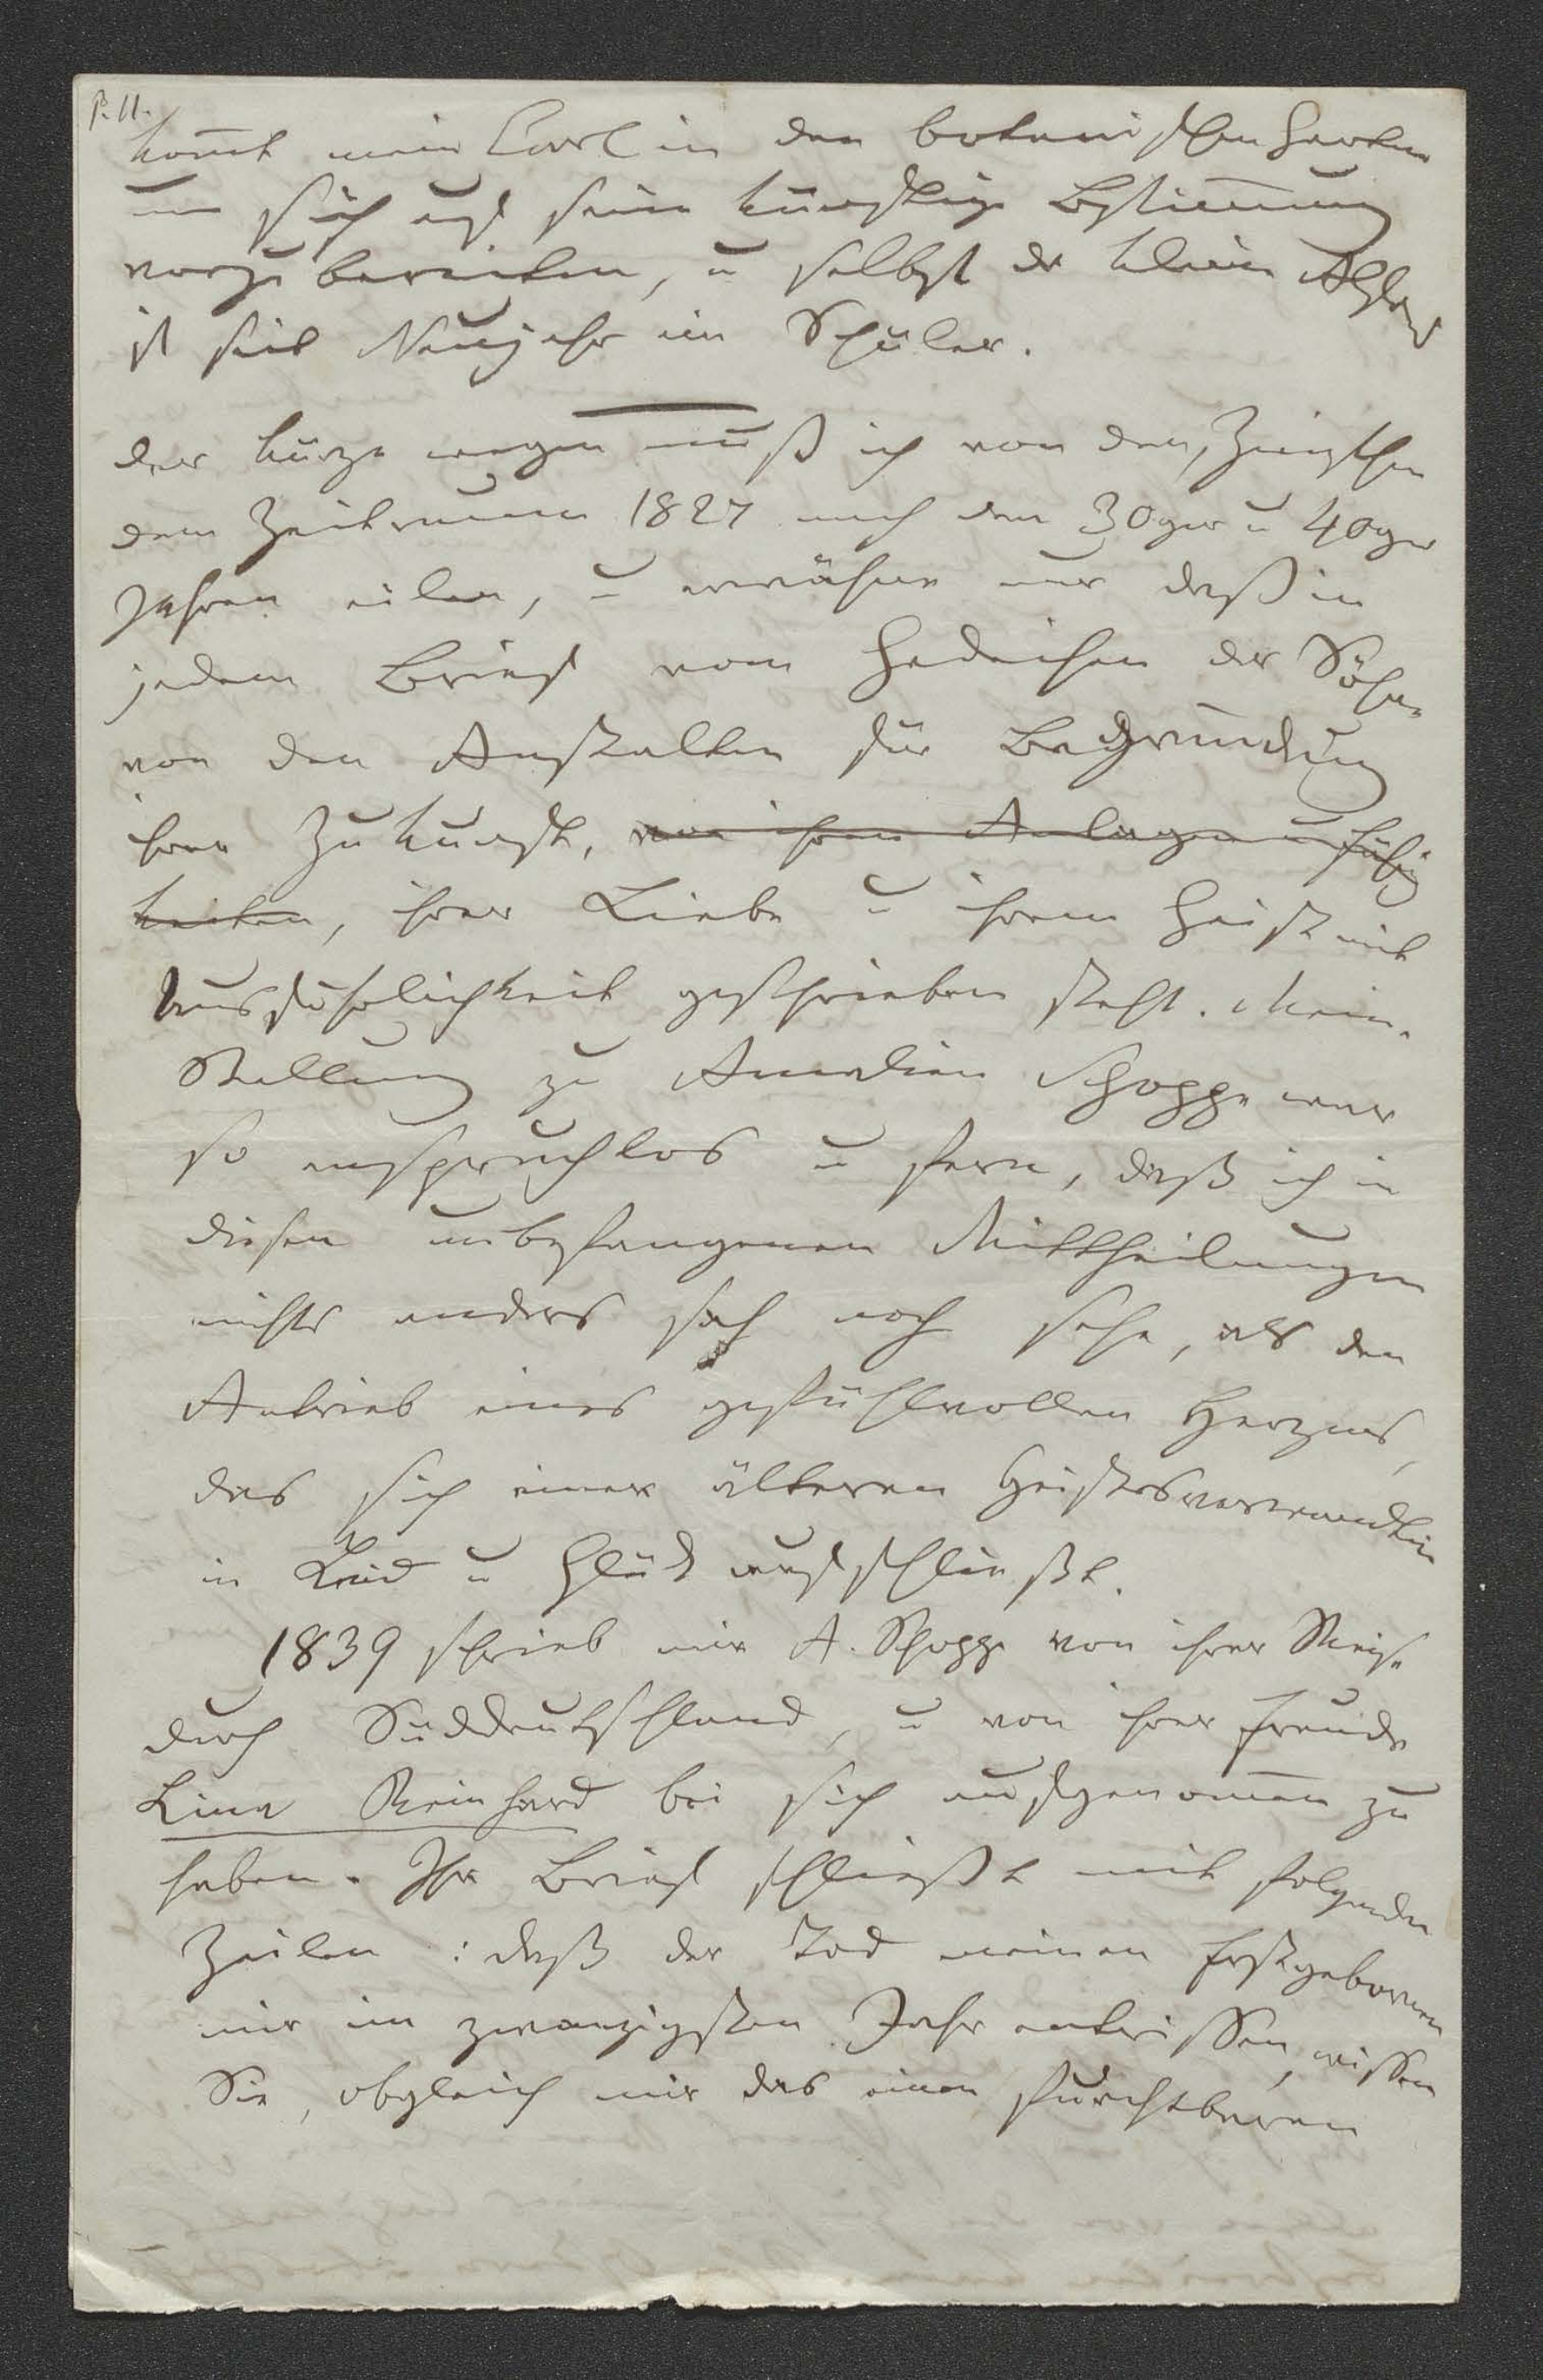 P. 11.
kom̄t mein Carl in den botanischen Garten
um sich auf seine künftige Bestim̄ung
vorzubereiten, u selbst der kleine Alphons
ist seit Neujahr ein Schüler.
der Kürze wegen muß ich von den, zwischen
dem Zeitraum 1827 nach den 30ger u 40ger
Jahren eilen, u erwähne nur daß in
jedem Brief vom Gedeihen der Söhne
von den Anstalten für Begründung
ihrer Zukunft, von ihren Anlagen u Fähig
keiten, ihrer Liebe u ihrem Geist mit
Ausführlichkeit geschrieben steht. Meine
Stellung zu Amalien Schoppe war
so anspruchlos u fern, daß ich in
diesen unbefangenen Mittheilungen
nichts anders sah noch sehe, als den
Antrieb eines gefühlvollen Herzens,
das sich einer älteren Geistesverwandtin
in Leid u Glück aufschließt.
1839 schrieb mir A. Schoppe von ihrer Reise
durch Süddeutschland, u von ihrer Freude
Lina Reinhard bei sich aufgenom̄en zu
haben. Ihr Brief schließt mit folgenden
Zeilen: daß der Tod meinen Erstgeborenen
mir im zwanzigsten Jahr entrissen, wissen
Sie, obgleich mir das einen furchtbaren